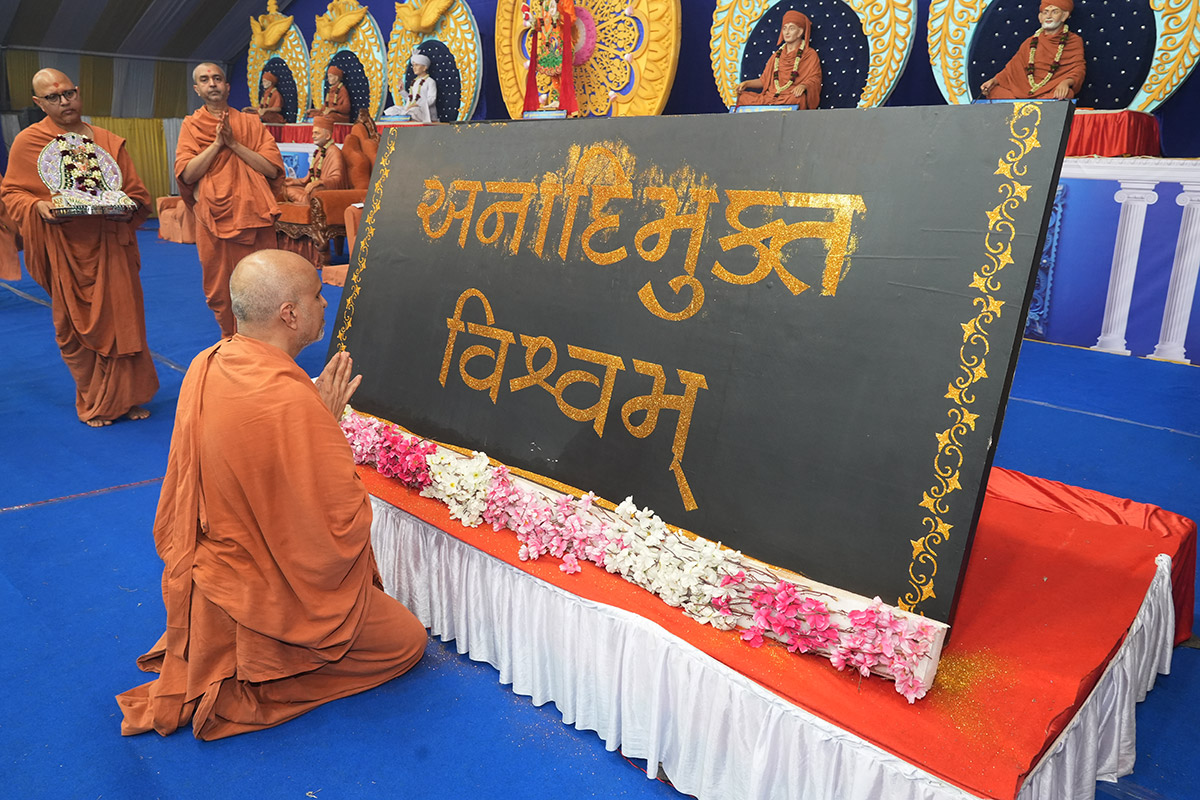 अनादिमुक्त
विश्वम्